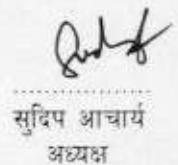 सुदिप आचार्य
अध्यक्ष